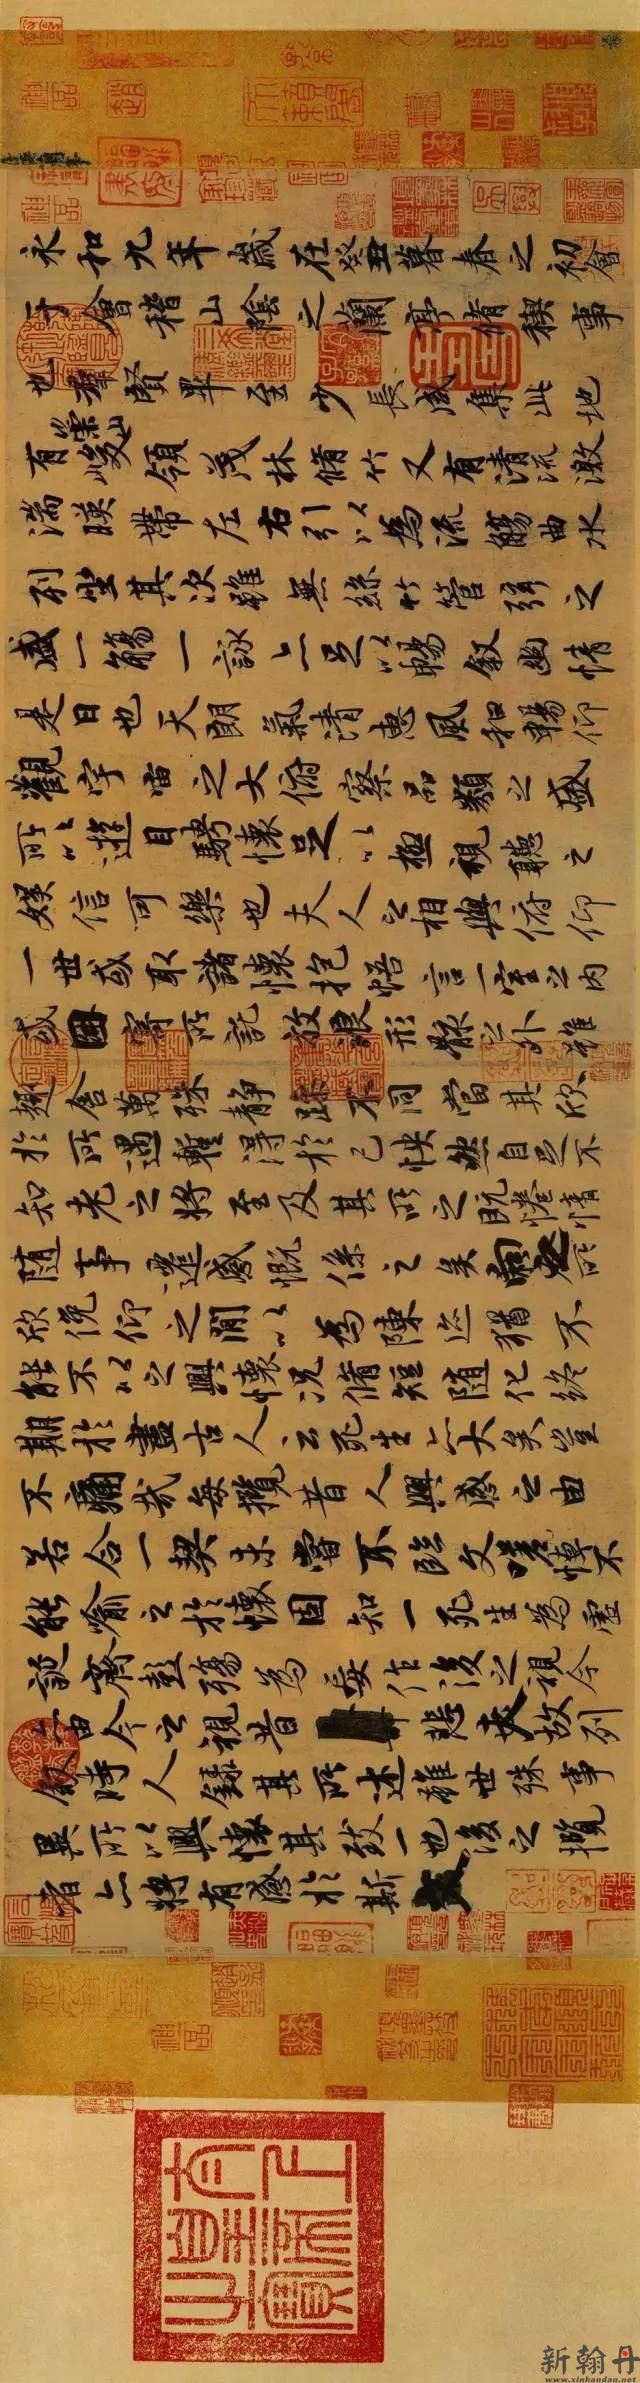 永和九年歲在癸丑暮春之初會
于會稽山陰之蘭亭脩稧事
也羣賢畢至少長咸集此地
有崇山峻領茂林脩竹又有清流激
湍暎帶左右引以為流觴曲水
列坐其次雖無絲竹管弦之
盛一觴一詠亦足以暢敘幽情
是日也天朗氣清惠風和暢仰
觀宇宙之大俯察品類之盛
所以遊目騁懷足以極視聽之
娛信可樂也夫人之相與俯仰
一世或取諸懷抱悟言一室之內
或因寄所託放浪形骸之外雖
趣舍萬殊靜躁不同當其欣
於所遇暫得於己怏然自足不
知老之將至及其所之既惓情
隨事遷感慨係之矣向之所
欣俛仰之閒以為陳迹猶不
能不以之興懷況脩短隨化終
期於盡古人云死生亦大矣豈
不痛哉每攬昔人興感之由
若合一契未嘗不臨文嗟悼不
能喻之於懷固知一死生為虛
誕齊彭殤為妄作後之視今
亦由今之視昔悲夫故列
敘時人錄其所述雖世殊事
異所以興懷其致一也後之攬
者亦將有感於斯文
太上皇帝之寶
新翰丹
www.xinhandan.net